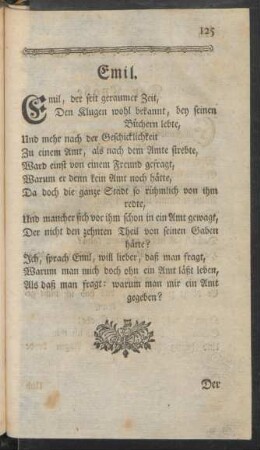 125
Emil.
Emil, der seit geraumer Zeit,
Den Klugen wohl bekannt, bey seinen
Büchern lebte,
Und mehr nach der Geschicklichkeit
Zu einem Amt, als nach dem Amte strebte,
Ward einst von einem Freund gefragt,
Warum er denn kein Amt noch hätte,
Da doch die ganze Stadt so rühmlich von ihm
redte,
Und mancher sich vor ihm schon in ein Amt gewagt,
Der nicht den zehnten Theil von seinen Gaben
hätte?
Ich, sprach Emil, will lieber, daß man fragt,
Warum man mich doch ohn ein Amt läßt leben,
Als daß man fragt: warum man mir ein Amt
gegeben?
Der